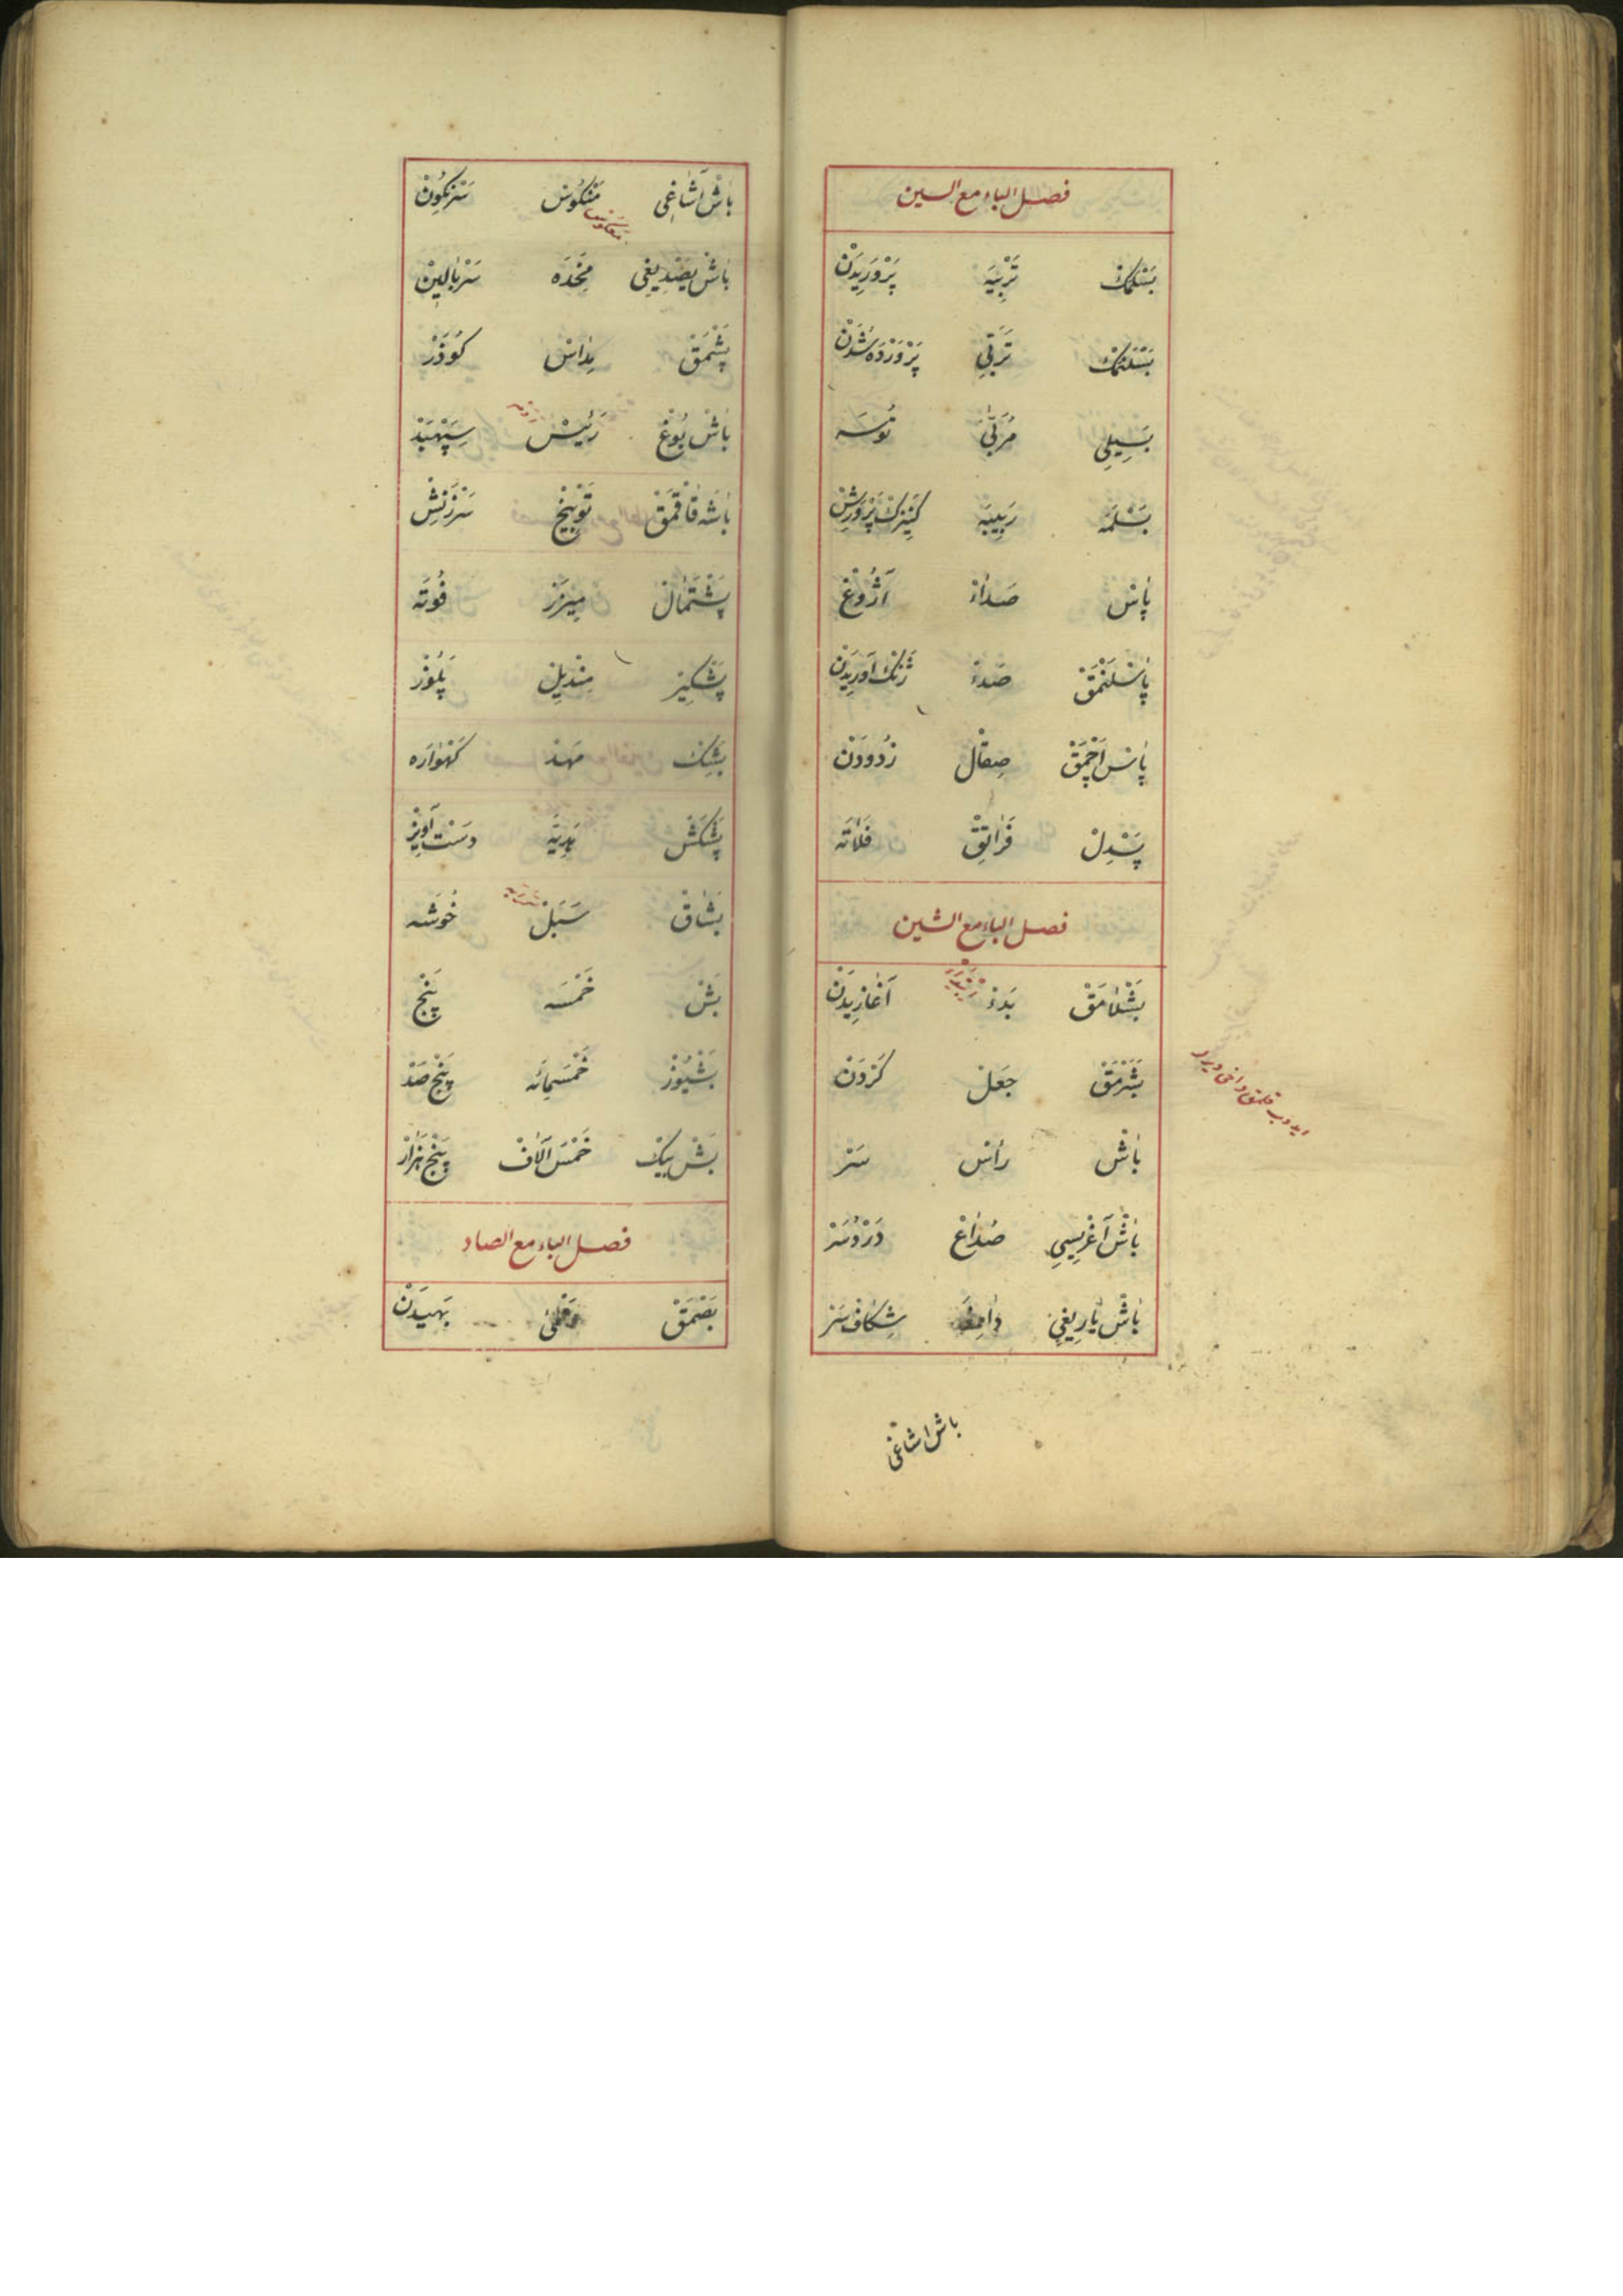 فصل الباء مع السين
بَسْلَمَكْ تَرْبِيَه پَرْوَرِيدَنْ
بَسْلَنْمَكْ تَرَبِّي پَرْوَرْدَه شُدَنْ
بَسِيلِي مُرَبّٰى نُوسَه
بَسْلَمَه رَبِيبَه كَنِيزَكْ پَرْوَرِشْ
پَاسْ صَدَاءْ آژُوغْ
پَاسْلَنْمَقْ صَدَءْ ژَنْكْ آوَرِيدَنْ
پَاسْ اَچْمَقْ صِقَالْ زُدُودَنْ
پَسْدِلْ فَرَاتِقْ فَلَاتَه
فصل الباء مع الشين
بَشْلَامَقْ بَدَءْ آغَازِيدَنْ
بَشَرْمَقْ جَعَلْ كَرْدَنْ
ايدوب قلمق داخى ديرلر
بَاشْ رَأسْ سَرْ
بَاشْ آغْرِيسِي صُدَاعْ دَرْدِ سَرْ
بَاشْ يَارِيغِي دَامِغَه شِكَافِ سَرْ
باش اشاغى
بَاشْ آشَاغِى مَنْكُوسْ سَرْنِكُونْ
بَاشْ يَصْدِيغِى مِخَدَه سَرْبَالِينْ
پَشْمَقْ مِدَاسْ كَوْدَرْ
بَاشْ بُوغْ رَئِيسْ سِپَهْبَدْ
بَاشَه قَاقْمَقْ تَوْبِيخْ سَرْزَنِشْ
پَشْتَمَالْ مِيزَرْ فُوتَه
پَشْكِيرْ مِنْدِيلْ پَلُوزْ
بَشِكْ مَهْدْ كَهْوَارَه
پَشْكَشْ هَدِيَّه دَسْت آوِيزْ
بَشَاقْ سَبَلْ خُوشَه
بَشْ خَمْسَه پَنْجْ
بَشْيُوزْ خَمْسَمِائَه پَنْجْ صَدْ
بَشْ بِيكْ خَمْسَ آلَافْ پَنْجْ هَزَارْ
فصل الباء مع الصاد
بَصْمَقْ بَهِيدَنْ